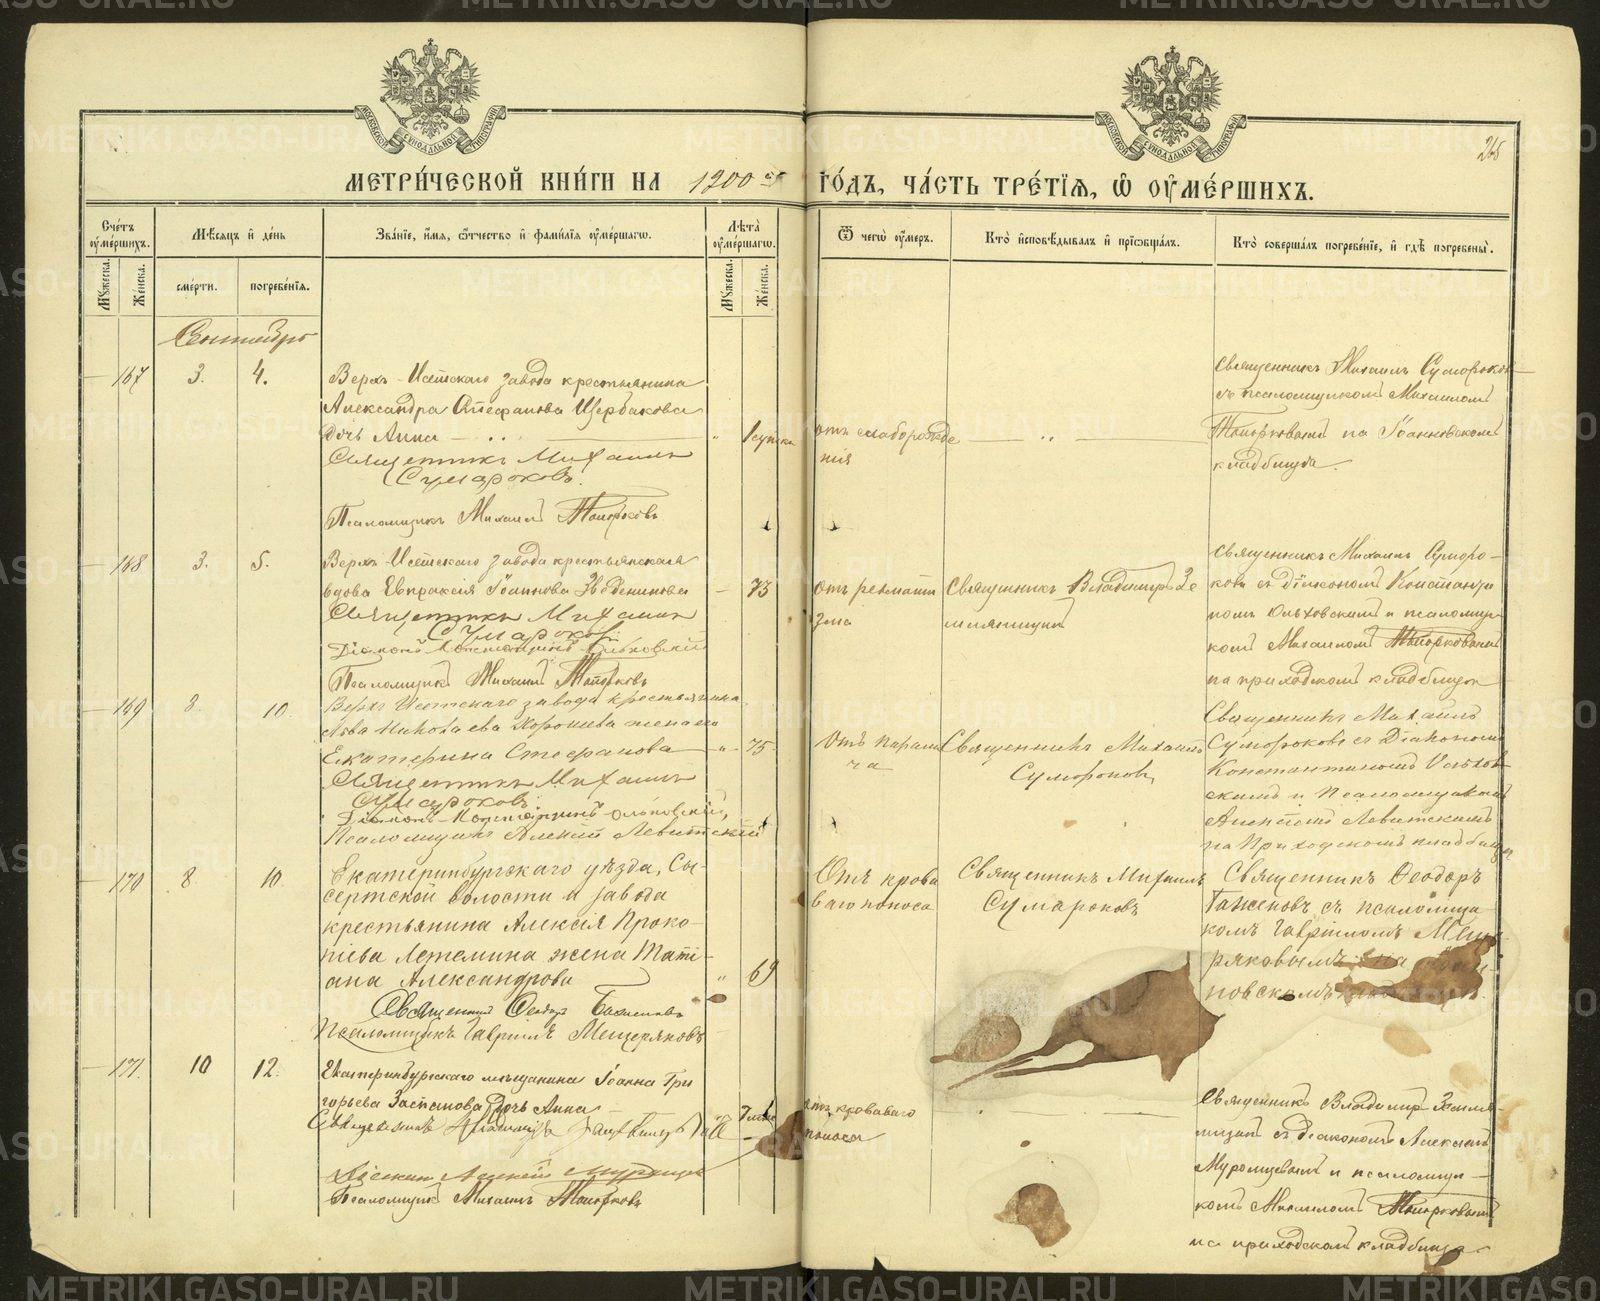 METRIKI.GASO-URAL.RU
МОСКОВСКОЙ СѴНОДАЛЬНОЙ ТИПОГРАФІИ
МОСКОВСКОЙ СѴНОДАЛЬНОЙ ТИПОГРАФІИ
265
МЕТРИ́ЧЕСКОЙ КНИ́ГИ НА 1900 ый ГО́ДЪ, ЧА́СТЬ ТРЕ́ТІѦ, Ѡ҆ ОУ҆МЕ́РШИХЪ.
Сче́тъ оу҆ме́ршихъ.
Мꙋжеска.
Же́нска.
Мѣ́сѧцъ и҆ де́нь
сме́рти.
погребе́нїѧ.
Зва́нїе, и҆́мѧ, ѻ҆́тчество и҆ фами́лїѧ оу҆ме́ршагѡ.
Лѣ̑та̀ оу҆ме́ршагѡ.
Мꙋжеска.
Же́нска.
Ѿ чегѡ̀ оу҆́меръ.
Кто̀ и҆сповѣ́дывалъ и҆ прїѡбща́лъ.
Кто̀ соверша́лъ погребе́нїе, и҆ гдѣ̀ погребены̀.
Сентябрь
167 3. 4.
Верхъ-Исетскаго завода крестьянина
Александра Стефанова Щербакова
дочь Анна
Священникъ Михаилъ
Сумароковъ.
Псаломщикъ Михаилъ Топорковъ
1 сутки
отъ слаборожде
нія
Священникъ Михаилъ Сумороков
съ псаломщикомъ Михаиломъ
Топорковымъ на Іоанновскомъ
кладбище.
168 3. 5.
Верхъ-Исетскаго завода крестьянская
вдова Евпраксія Іоаннова
Священникъ Михаилъ
Сумароковъ.
Діаконъ Константинъ Ольховскій
Псаломщикъ Михаилъ Топорковъ
73
отъ ревмати
зма
Священникъ Владимиръ Зе
мляницын
Священникъ Михаилъ Суморо-
ковъ съ діакономъ Константи
номъ Ольховскимъ и псаломщи
комъ Михаиломъ Топорковымъ
на приходскомъ кладбище
169 8. 10.
Верхъ Исетскаго завода крестьянина
Льва Николаева Хорошева жена его
Екатерина Стефанова
Священникъ Михаилъ
Сумароковъ.
Діаконъ Константинъ Ольховскій,
Псаломщикъ Алексій Левитскій
75.
Отъ парали
ча
Священникъ Михаилъ
Сумороковъ
Священникъ Михаилъ
Суморокове съ Діакономъ
Константиномъ Ольхов
скимъ и Псаломщикомъ
Алексіемъ Левитскимъ
на Приходскомъ кладбище
170 8 10.
Екатеринбургскаго уѣзда, Сы-
сертской волости и завода
крестьянина Алексія Проко-
піева Летемина жена Тати-
ана Александрова
Священникъ Ѳеодоръ
Псаломщикъ Гавріилъ Мещеряковъ
69
Отъ крова
ваго поноса
Священникъ Михаилъ
Сумароковъ
Священникъ Ѳеодоръ
съ псаломщи
комъ Гавріиломъ Меще
ряковымъ на Іоан-
новскомъ
171. 10 12.
Екатеринбургскаго мѣщанина Іоанна Гри
горьева дочь Анна
Діаконъ Алексій Муромцевъ
Псаломщикъ Михаилъ Топорковъ
отъ кроваваго
поноса
Священникъ Владимиръ Земля-
ницын съ діакономъ Алексіемъ
Муромцевымъ и псаломщи-
комъ Михаиломъ Топорковымъ
на приходскомъ кладбище